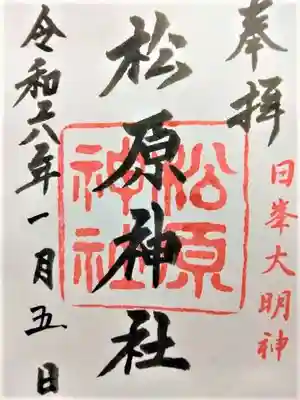 奉拝
日峯大明神
松原神社
松原神社
令和六年一月五日